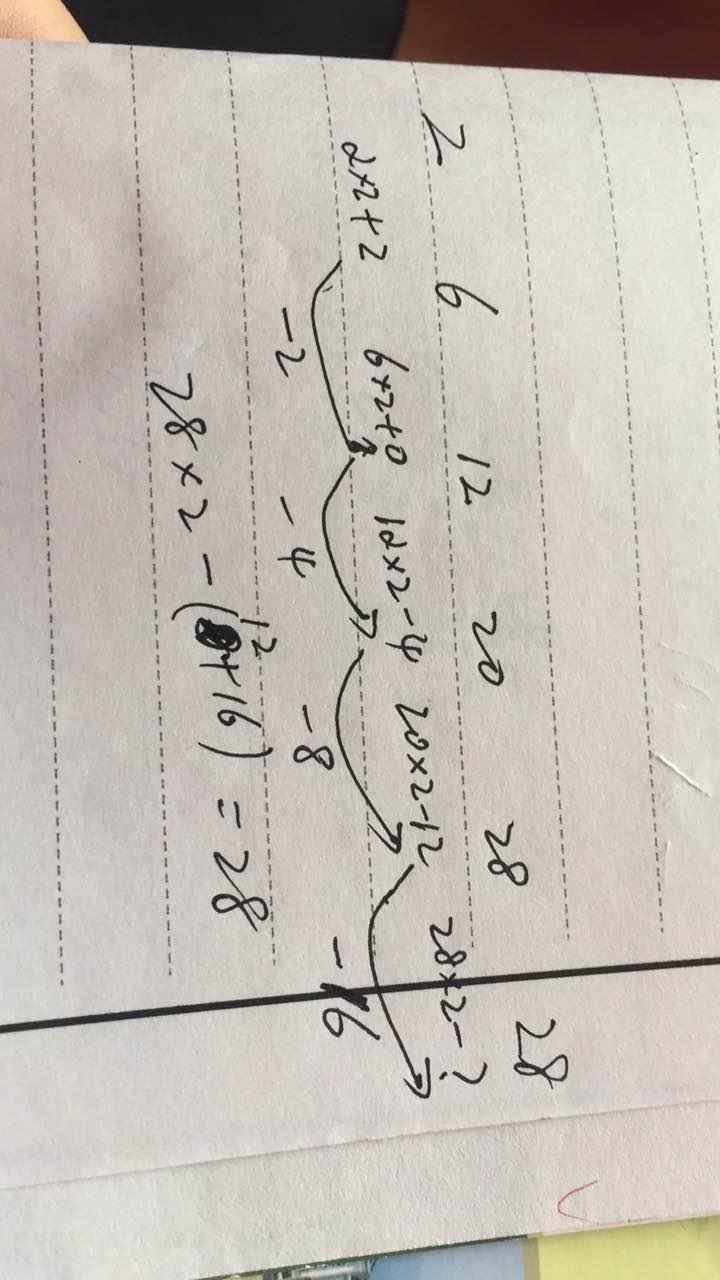 2 6 12 20 28 28
2×2+2 6×2+0 12×2-4 20×2-12 28×2-?
-2 -4 -8 -16
28×2-(12+16)=28